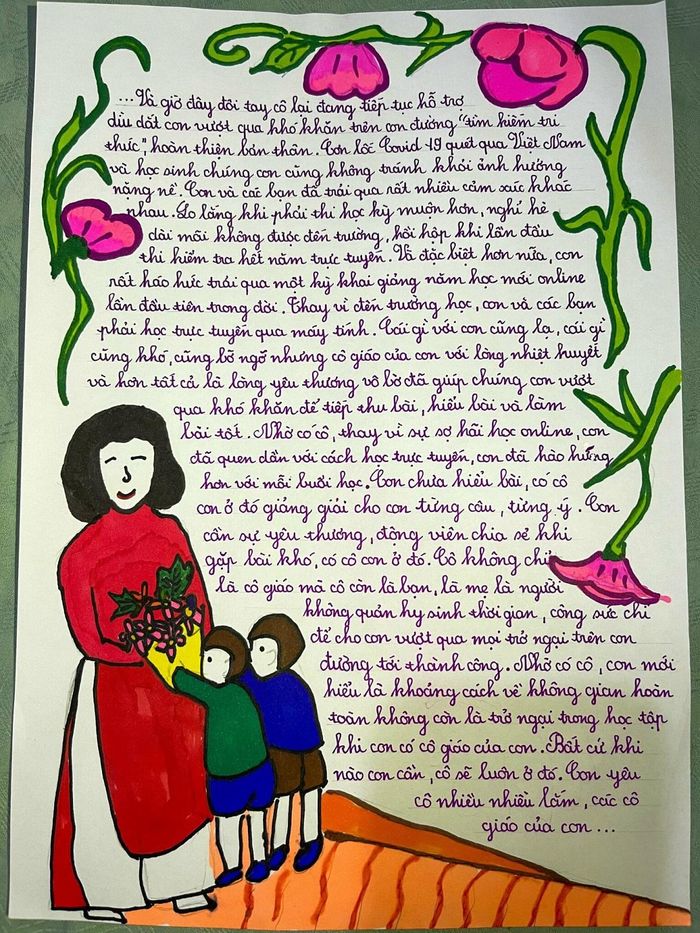 ...Và giờ đây đôi tay cô lại đang tiếp tục hỗ trợ
dìu dắt con vượt qua khó khăn trên con đường "tìm kiếm tri
thức", hoàn thiện bản thân. Cơn lốc Covid-19 quét qua Việt Nam
và học sinh chúng con cũng không tránh khỏi ảnh hưởng
nặng nề. Con và các bạn đã trải qua rất nhiều cảm xúc khác
nhau. Lo lắng khi phải thi học kỳ muộn hơn, nghỉ hè
dài mãi không được đến trường, hồi hộp khi lần đầu
thi kiểm tra hết năm trực tuyến. Và đặc biệt hơn nữa, con
rất háo hức trải qua một kỳ khai giảng năm học mới online
lần đầu tiên trong đời. Thay vì đến trường học, con và các bạn
phải học trực tuyến qua máy tính. Cái gì với con cũng lạ, cái gì
cũng khó, cũng bỡ ngỡ nhưng cô giáo của con với lòng nhiệt huyết
và hơn tất cả là lòng yêu thương vô bờ đã giúp chúng con vượt
qua khó khăn để tiếp thu bài, hiểu bài và làm
bài tốt. Nhờ có cô, thay vì sự sợ hãi học online, con
đã quen dần với cách học trực tuyến, con đã hào hứng
hơn với mỗi buổi học. Con chưa hiểu bài, có cô
con ở đó giảng giải cho con từng câu, từng ý. Con
cần sự yêu thương, động viên chia sẻ khi
gặp bài khó, có cô con ở đó. Cô không chỉ
là cô giáo mà cô còn là bạn, là mẹ là người
không quản hy sinh thời gian, công sức chỉ
để cho con vượt qua mọi trở ngại trên con
đường tới thành công. Nhờ có cô, con mới
hiểu là khoảng cách về không gian hoàn
toàn không còn là trở ngại trong học tập
khi con có cô giáo của con. Bất cứ khi
nào con cần, cô sẽ luôn ở đó. Con yêu
cô nhiều nhiều lắm, các cô
giáo của con...